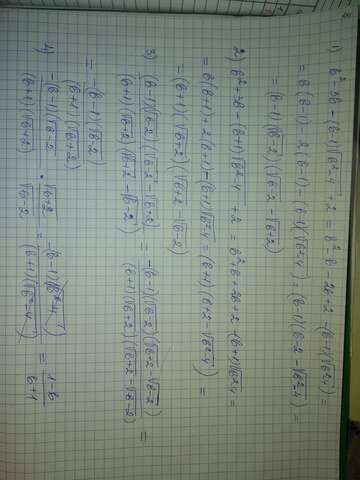 1) b² 3b - (b-1)√b²-4 + 2 = b² b - 2b + 2 - (b-1)√b²-4 =
= b(b-1) 2(b-1) - (b-1)√b²-4 = (b-1)(b-2-√b²-4) =
= (b-1)(√b-2)(√b-2 - √b+2)
2) b² + 3b - (b+1)√b²-4 + 2 = b² + b + 2b + 2 - (b+1)√b²-4 =
= b(b+1) + 2(b+1) - (b+1)√b²-4 = (b+1)(b+2-√b²-4) =
= (b+1)(√b+2)(√b+2 - √b-2)
3) (b-1)(√b-2)(√b-2 - √b+2) / (b+1)(√b+2)(√b+2 - √b-2) = -(b-1)(√b-2)(√b+2 - √b-2) / (b+1)(√b+2)(√b+2 - √b-2) =
= -(b-1)(√b-2) / (b+1)(√b+2)
4) -(b-1)√b-2 / (b+1)√b+2 · √b+2 / √b-2 = -(b-1)√b²-4 / (b+1)√b²-4 = 1-b / b+1